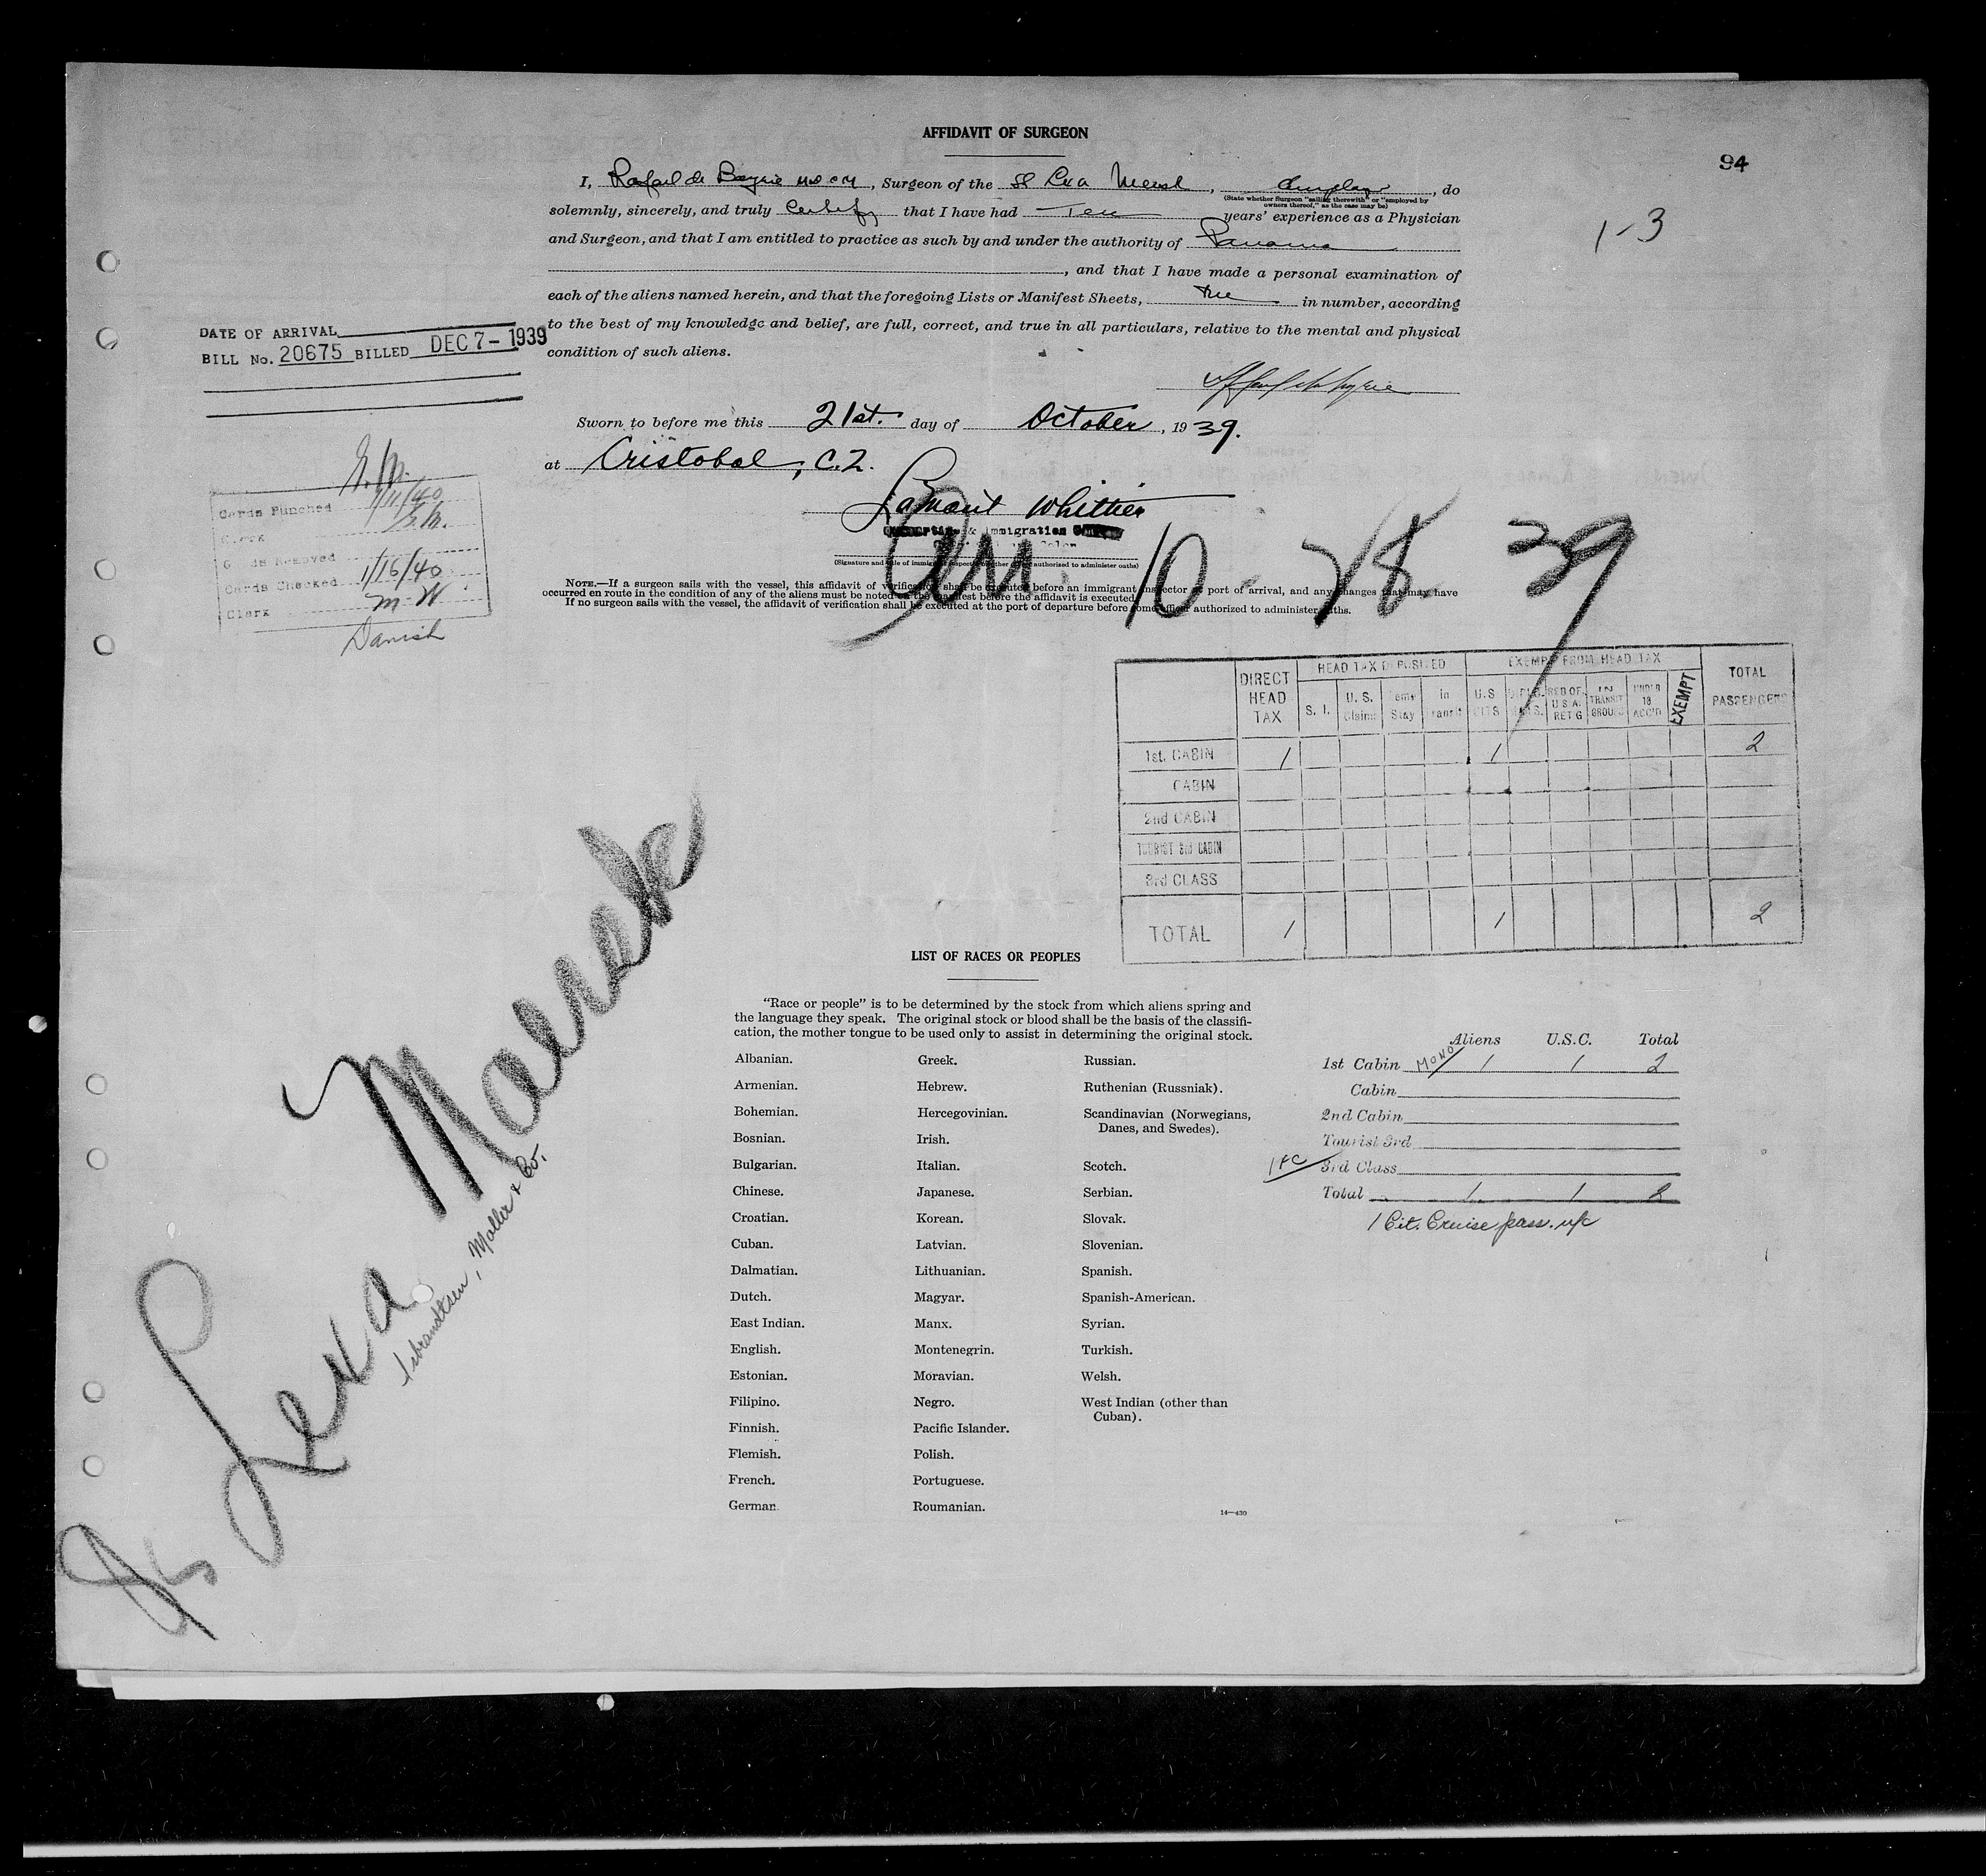 AFFIDAVIT OF SURGEON
94
I, Rafael de Boyrie, Surgeon of the SS Lexa Maersk, , do
(State whether Surgeon "sailing therewith" or "employed by
owners thereof," as the case may be)
solemnly, sincerely, and truly Certify that I have had Ten years' experience as a Physician
1-3
and Surgeon, and that I am entitled to practice as such by and under the authority of Panama
, and that I have made a personal examination of
each of the aliens named herein, and that the foregoing Lists or Manifest Sheets, in number, according
to the best of my knowledge and belief, are full, correct, and true in all particulars, relative to the mental and physical
condition of such aliens.
DATE OF ARRIVAL
BILL No. 20675 BILLED DEC 7 - 1939
Sworn to before me this 21st. day of October, 1939.
at Cristobal, C.Z.
Lamont Whittier
& Immigration
(Signature and title of immigrant inspector or other officer authorized to administer oaths)
Arr. 10 - 28 - 39
NOTE.—If a surgeon sails with the vessel, this affidavit of verification shall be executed before an immigrant inspector at port of arrival, and any changes that may have
occurred en route in the condition of any of the aliens must be noted on the manifest before the affidavit is executed.
If no surgeon sails with the vessel, the affidavit of verification shall be executed at the port of departure before some officer authorized to administer oaths.
Cards Punched 1/11/40
Clerk
Cards Removed
Cards Checked 1/16/40
Clerk M W
Danish
DIRECT HEAD TAX HEAD TAX DEPOSITED EXEMPT FROM HEAD TAX TOTAL PASSENGERS
S. I. U. S. Claims Temp Stay In Transit U.S CITS DIPLO. RES OF U S A. RET'G IN TRANSIT GROUP UNDER 16 ACC'D EXEMPT
1st. CABIN 1 1 2
CABIN
2nd CABIN
TOURIST 3rd CABIN
3rd CLASS
TOTAL 1 1 2
SS Lexa Maersk
Isbrandtsen, Moller & Co.
LIST OF RACES OR PEOPLES
"Race or people" is to be determined by the stock from which aliens spring and
the language they speak. The original stock or blood shall be the basis of the classifi-
cation, the mother tongue to be used only to assist in determining the original stock.
Albanian. Greek. Russian.
Armenian. Hebrew. Ruthenian (Russniak).
Bohemian. Hercegovinian. Scandinavian (Norwegians,
Danes, and Swedes).
Bosnian. Irish.
Bulgarian. Italian. Scotch.
Chinese. Japanese. Serbian.
Croatian. Korean. Slovak.
Cuban. Latvian. Slovenian.
Dalmatian. Lithuanian. Spanish.
Dutch. Magyar. Spanish-American.
East Indian. Manx. Syrian.
English. Montenegrin. Turkish.
Estonian. Moravian. Welsh.
Filipino. Negro. West Indian (other than
Cuban).
Finnish. Pacific Islander.
Flemish. Polish.
French. Portuguese.
German. Roumanian.
14—430
Aliens U.S.C. Total
1st Cabin MONO 1 1 2
Cabin
2nd Cabin
Tourist 3rd
3rd Class
Total 1 1 2
1 Cit. Cruise pass.